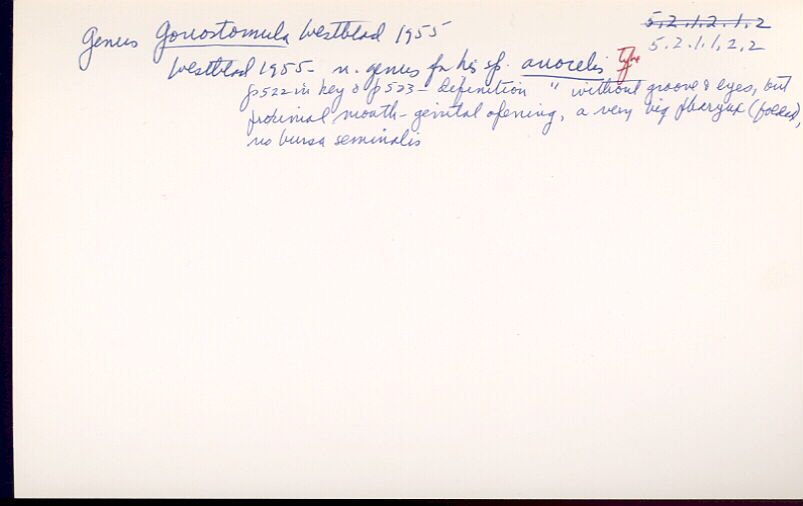 5.2.1.2.1.2
Genus Gonostomula Westblad 1955
5.2.1.1.2.2
Westblad 1955 - n. genus for his sp. anocelis Type
p522 in key & p523 - definition " without groove & eyes, but
proximal mouth - genital opening, a very big pharynx (folded),
no bursa seminalis